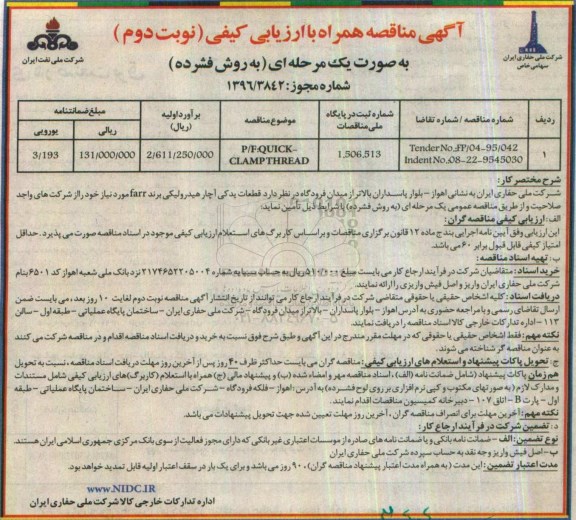 آگهی مناقصه همراه با ارزیابی کیفی (نوبت دوم)
به صورت یک مرحله ای (به روش فشرده)
شماره مجوز: ۱۳۹۶/۳۸۴۲
شرکت ملی نفت ایران
شرکت ملی حفاری ایران
سهامی خاص
ردیف
شماره مناقصه / شماره تقاضا
شماره ثبت در پایگاه
ملی مناقصات
موضوع مناقصه
برآورد اولیه
(ریال)
مبلغ ضمانتنامه
ریالی
یورویی
۱
Tender No.:FP/04-95/042
Indent No.:08-22-9545030
1,506,513
P/F:QUICK-
CLAMP THREAD
2/611/250/000
131/000/000
3/193
شرح مختصر کار:
شرکت ملی حفاری ایران به نشانی اهواز – بلوار پاسداران بالاتر از میدان فرودگاه در نظر دارد قطعات یدکی آچار هیدرولیکی برند farr مورد نیاز خود را از شرکت های واجد
صلاحیت و از طریق مناقصه عمومی یک مرحله ای (به روش فشرده) با شرایط ذیل تأمین نماید:
الف: ارزیابی کیفی مناقصه گران:
این ارزیابی وفق آیین نامه اجرایی بند ج ماده ۱۲ قانون برگزاری مناقصات و براساس کاربرگ های استعلام ارزیابی کیفی موجود در اسناد مناقصه صورت می پذیرد. حداقل
امتیاز کیفی قابل قبول برابر ۶۰ می باشد.
ب: تهیه اسناد مناقصه:
خرید اسناد: متقاضیان شرکت در فرآیند ارجاع کار می بایست مبلغ ۵۱۰/۰۰۰ ریال به حساب سیبا به شماره ۲۱۷۴۶۵۲۲۰۵۰۰۴ نزد بانک ملی شعبه اهواز کد ۶۵۰۱ بنام
شرکت ملی حفاری ایران واریز و اصل فیش واریزی را ارائه نمایند.
دریافت اسناد: کلیه اشخاص حقیقی یا حقوقی متقاضی شرکت در فرآیند ارجاع کار می توانند از تاریخ انتشار آگهی مناقصه نوبت دوم لغایت ۱۰ روز بعد، می بایست ضمن
ارسال تقاضای رسمی و با مراجعه حضوری به آدرس اهواز – بلوار پاسداران – بالاتر از میدان فرودگاه – شرکت ملی حفاری ایران – ساختمان پایگاه عملیاتی – طبقه اول – سالن
۱۱۳ – اداره تدارکات خارجی کالا اسناد مناقصه را دریافت نمایند.
نکته مهم: فقط اشخاص حقیقی یا حقوقی که در مهلت مقرر مندرج در این آگهی و طبق شرح فوق نسبت به خرید و دریافت اسناد مناقصه اقدام و در مناقصه شرکت می کنند
به عنوان مناقصه گر شناخته می شوند.
ج: تحویل پاکات پیشنهاد و استعلام های ارزیابی کیفی: مناقصه گران می بایست حداکثر ظرف ۴۰ روز پس از آخرین روز مهلت دریافت اسناد مناقصه، نسبت به تحویل
هم زمان پاکات پیشنهاد (شامل ضمانت نامه (الف)، اسناد مناقصه مهر و امضاء شده (ب) و پیشنهاد مالی (ج) همراه با استعلام (کاربرگ های) ارزیابی کیفی شامل مستندات
و مدارک لازم (به صورتهای مکتوب و کپی نرم افزاری بر روی لوح فشرده) به آدرس: اهواز – فلکه فرودگاه – شرکت ملی حفاری ایران – ساختمان پایگاه عملیاتی – طبقه
اول – پارت B – اتاق ۱۰۷ – دبیرخانه کمیسیون مناقصات اقدام نمایند.
نکته مهم: آخرین مهلت برای انصراف مناقصه گران، آخرین روز مهلت تعیین شده جهت تحویل پیشنهادات می باشد.
د: تضمین شرکت در فرآیند ارجاع کار:
نوع تضمین: الف – ضمانت نامه بانکی و یا ضمانت نامه های صادره از موسسات اعتباری غیر بانکی که دارای مجوز فعالیت از سوی بانک مرکزی جمهوری اسلامی ایران هستند.
ب – اصل فیش واریز وجه نقد به حساب سپرده شرکت ملی حفاری ایران
مدت اعتبار تضمین: این مدت (به همراه مدت اعتبار پیشنهاد مناقصه گران)، ۹۰ روز می باشد و برای یک بار در سقف اعتبار اولیه قابل تمدید خواهد بود.
www.NIDC.IR
اداره تدارکات خارجی کالا شرکت ملی حفاری ایران